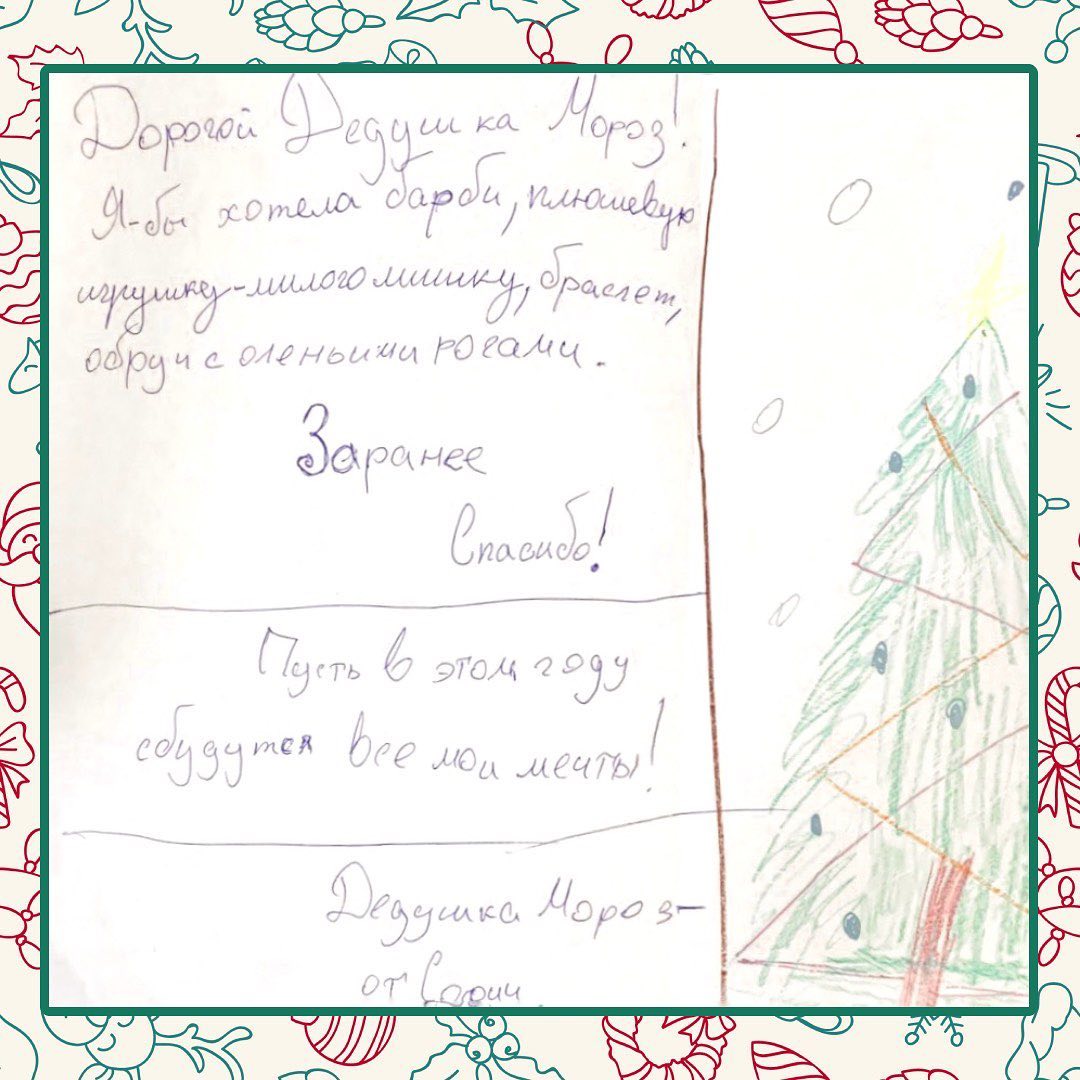 Дорогой Дедушка Мороз!
Я-бы хотела барби, плюшевую
игрушку-милого мишку, браслет,
обруч с оленьими рогами.
Заранее
Спасибо!
Пусть в этом году
сбудутся все мои мечты!
Дедушка Мороз-
от